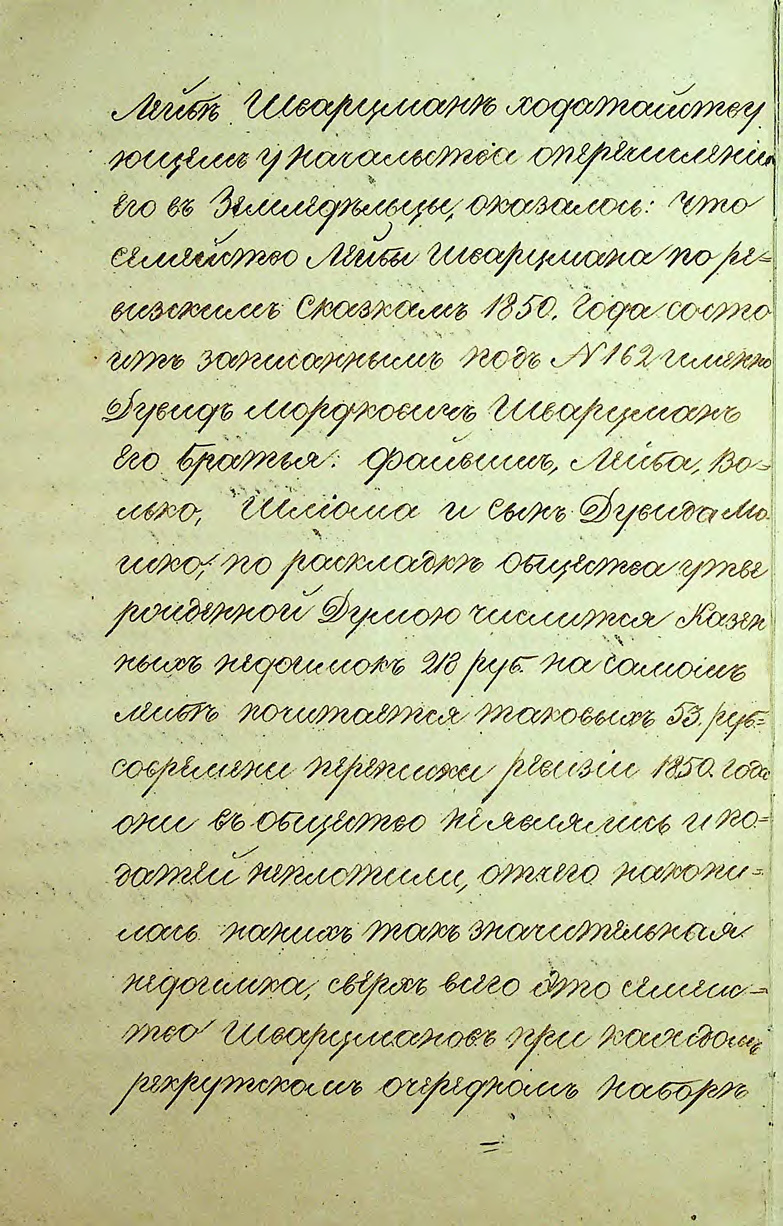 Лейбѣ Шварцманѣ ходатайству
ющемъ у начальства оперечисленіи
его въ Земледѣльцы, оказалось: что
семейство Лейбы Шварцмана по ре=
визскимъ Сказкамъ 1850. года состо
итъ записаннымъ подъ N 162 именно
Дувидъ Мордковичъ Шварцманъ
его братья: Файвишъ, Лейба, Во=
лько, Шліома и сынъ Дувида Мо
шко; по раскладкѣ общества утве
ржденной Думою числится Казен
ныхъ недоимокъ 218 руб. на самомъ
Лейбѣ почитается таковыхъ 53. руб=
современи переписки ревизіи 1850. года
они въ общество неявлялись и по=
датей неплотили, отчего накопи=
лась нанихъ такъ значительная
недоимка, сверхъ всего это семейс=
тво Шварцмановъ при каждомъ
рекрутскомъ очередномъ наборѣ
=